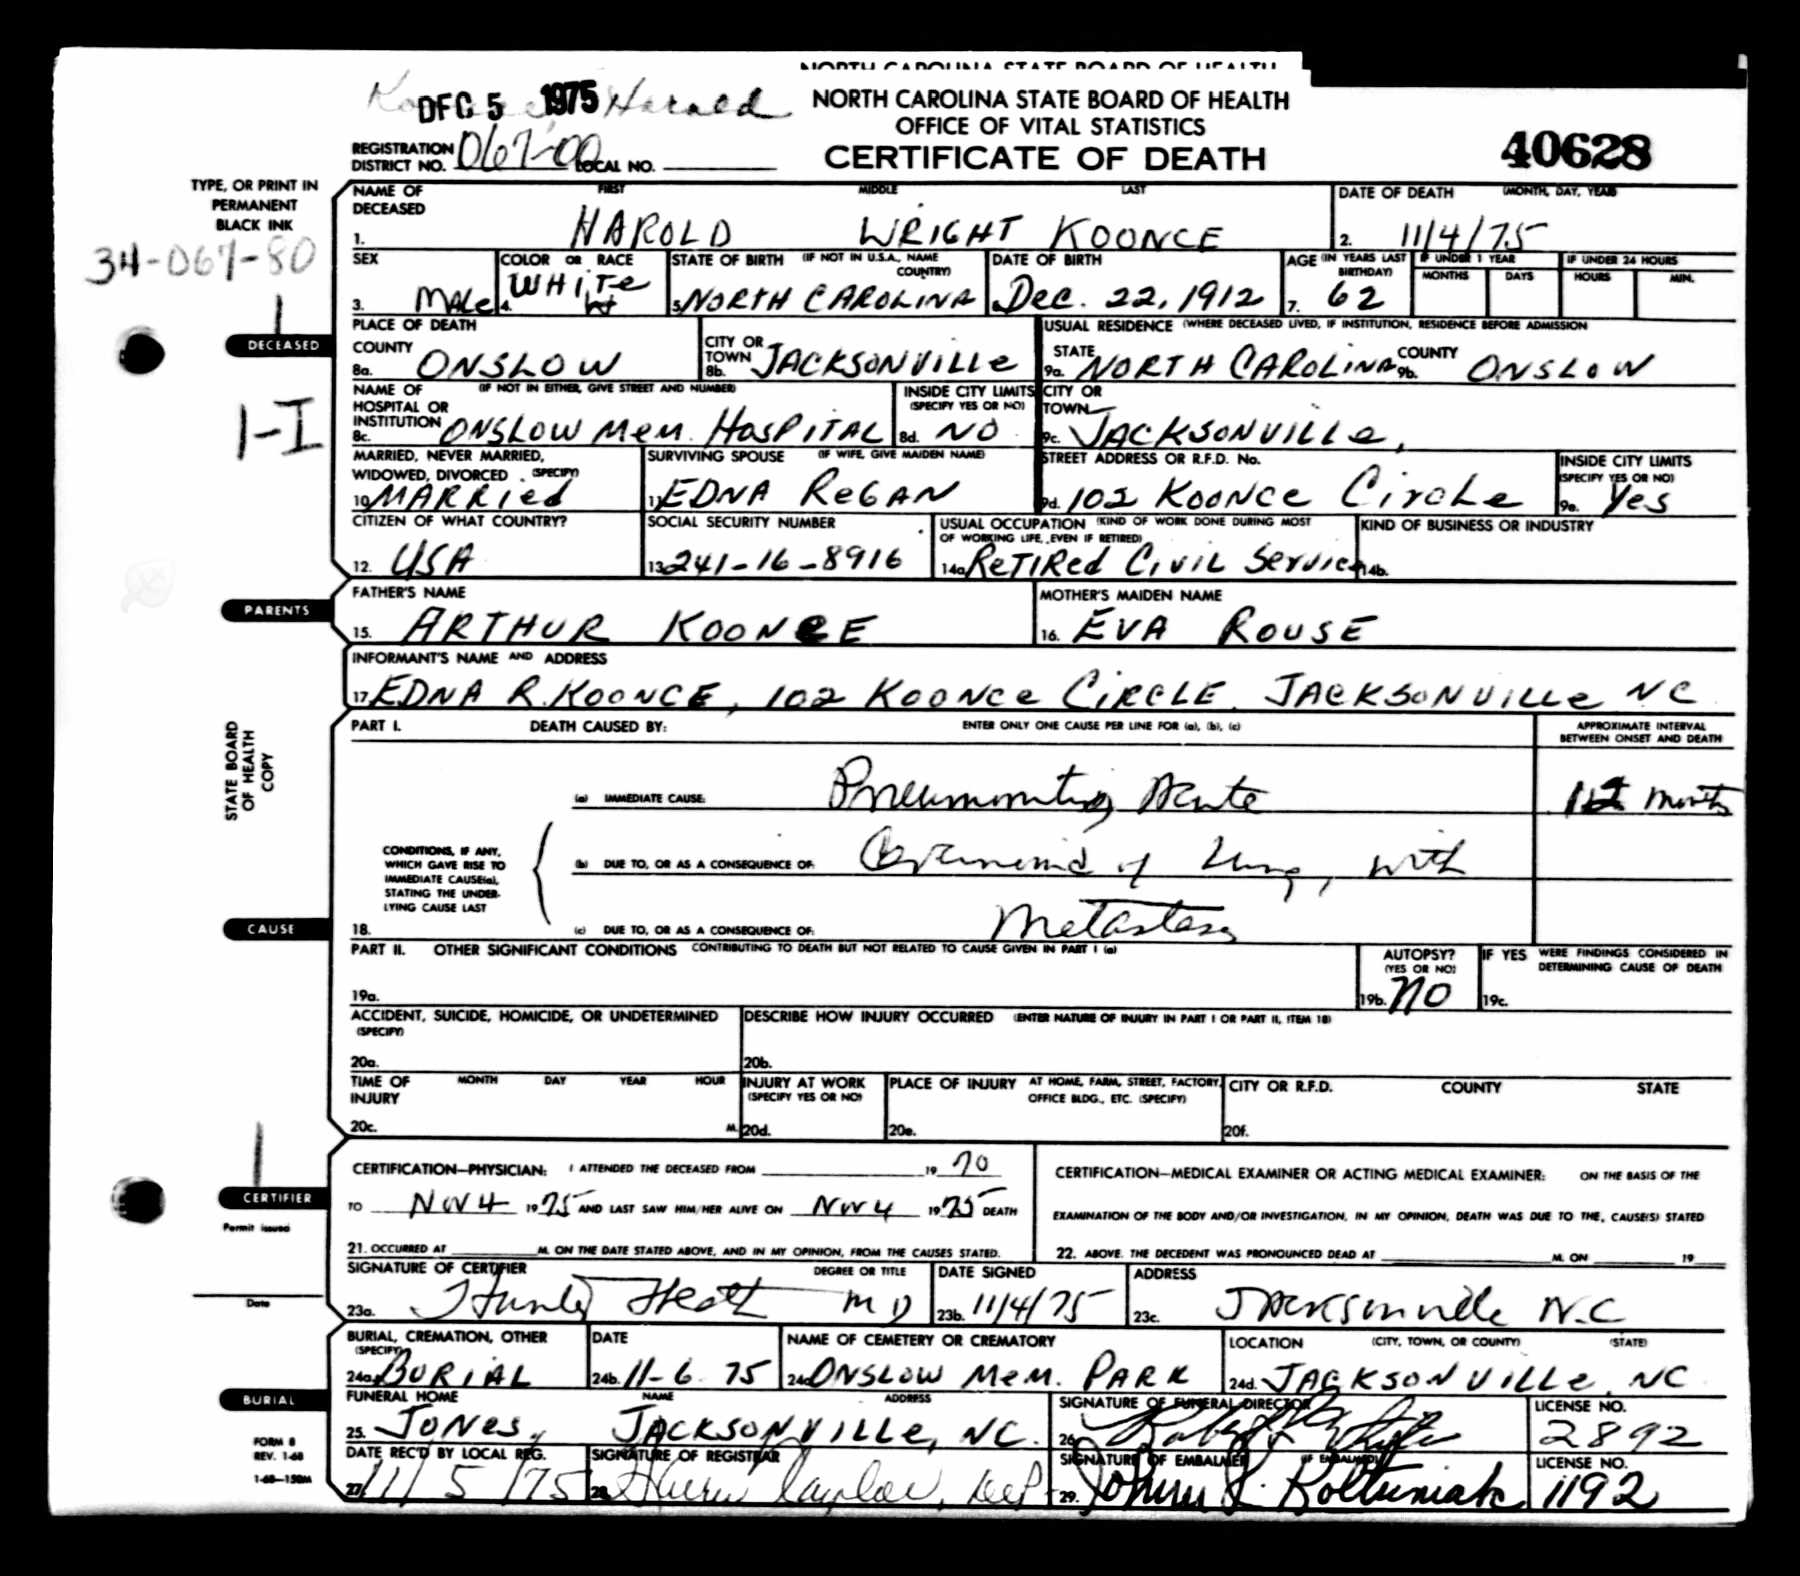 NORTH CAROLINA STATE BOARD OF HEALTH
DEC 5 1975 Harold
NORTH CAROLINA STATE BOARD OF HEALTH
OFFICE OF VITAL STATISTICS
CERTIFICATE OF DEATH
40628
REGISTRATION DISTRICT NO. 067-00 LOCAL NO.
TYPE, OR PRINT IN
PERMANENT
BLACK INK
34-067-80
1
DECEASED
1-I
NAME OF DECEASED FIRST MIDDLE LAST
1. HAROLD WRIGHT KOONCE
DATE OF DEATH (MONTH, DAY, YEAR)
2. 11/4/75
SEX
3. MALE
COLOR OR RACE
4. WHITE W
STATE OF BIRTH (IF NOT IN U.S.A., NAME COUNTRY)
5. NORTH CAROLINA
DATE OF BIRTH
Dec. 22, 1912
AGE (IN YEARS LAST BIRTHDAY)
7. 62
IF UNDER 1 YEAR
MONTHS DAYS
IF UNDER 24 HOURS
HOURS MIN.
PLACE OF DEATH
COUNTY
8a. ONSLOW
CITY OR TOWN
8b. JACKSONVILLE
USUAL RESIDENCE (WHERE DECEASED LIVED, IF INSTITUTION, RESIDENCE BEFORE ADMISSION
STATE
9a. NORTH CAROLINA
COUNTY
9b. ONSLOW
NAME OF HOSPITAL OR INSTITUTION (IF NOT IN EITHER, GIVE STREET AND NUMBER)
8c. ONSLOW Mem. HOSPITAL
INSIDE CITY LIMITS (SPECIFY YES OR NO)
8d. NO
CITY OR TOWN
9c. JACKSONVILLE,
MARRIED, NEVER MARRIED, WIDOWED, DIVORCED (SPECIFY)
10. MARRied
SURVIVING SPOUSE (IF WIFE, GIVE MAIDEN NAME)
11. EDNA REGAN
STREET ADDRESS OR R.F.D. No.
9d. 102 KOONCE CIRCLE
INSIDE CITY LIMITS (SPECIFY YES OR NO)
9e. Yes
CITIZEN OF WHAT COUNTRY?
12. USA
SOCIAL SECURITY NUMBER
13. 241-16-8916
USUAL OCCUPATION (KIND OF WORK DONE DURING MOST OF WORKING LIFE, EVEN IF RETIRED)
14a. RETIRED CIVIL Service
KIND OF BUSINESS OR INDUSTRY
14b.
PARENTS
FATHER'S NAME
15. ARTHUR KOONCE
MOTHER'S MAIDEN NAME
16. EVA ROUSE
INFORMANT'S NAME AND ADDRESS
17. EDNA R. KOONCE, 102 KOONCE CIRCLE JACKSONVILLE NC
STATE BOARD
OF HEALTH
COPY
PART I. DEATH CAUSED BY: ENTER ONLY ONE CAUSE PER LINE FOR (a), (b), (c)
APPROXIMATE INTERVAL
BETWEEN ONSET AND DEATH
(a) IMMEDIATE CAUSE: Pneumonitis, Acute
months
CONDITIONS, IF ANY,
WHICH GAVE RISE TO
IMMEDIATE CAUSE(a),
STATING THE UNDER-
LYING CAUSE LAST
(b) DUE TO, OR AS A CONSEQUENCE OF: Carcinoma of Lung, with
CAUSE
18. (c) DUE TO, OR AS A CONSEQUENCE OF: Metastases
PART II. OTHER SIGNIFICANT CONDITIONS CONTRIBUTING TO DEATH BUT NOT RELATED TO CAUSE GIVEN IN PART I (a)
19a.
AUTOPSY? (YES OR NO)
19b. NO
IF YES WERE FINDINGS CONSIDERED IN DETERMINING CAUSE OF DEATH
19c.
ACCIDENT, SUICIDE, HOMICIDE, OR UNDETERMINED (SPECIFY)
20a.
DESCRIBE HOW INJURY OCCURRED (ENTER NATURE OF INJURY IN PART I OR PART II, ITEM 18)
20b.
TIME OF INJURY MONTH DAY YEAR HOUR
20c. M.
INJURY AT WORK (SPECIFY YES OR NO)
20d.
PLACE OF INJURY AT HOME, FARM, STREET, FACTORY, OFFICE BLDG., ETC. (SPECIFY)
20e.
CITY OR R.F.D. COUNTY STATE
20f.
CERTIFIER
Permit issued
Date
CERTIFICATION—PHYSICIAN: I ATTENDED THE DECEASED FROM 19 70
TO NOV 4 19 75 AND LAST SAW HIM/HER ALIVE ON NOV 4 19 75 DEATH
21. OCCURRED AT M. ON THE DATE STATED ABOVE, AND IN MY OPINION, FROM THE CAUSES STATED.
CERTIFICATION—MEDICAL EXAMINER OR ACTING MEDICAL EXAMINER: ON THE BASIS OF THE
EXAMINATION OF THE BODY AND/OR INVESTIGATION, IN MY OPINION, DEATH WAS DUE TO THE, CAUSE(S) STATED
22. ABOVE. THE DECEDENT WAS PRONOUNCED DEAD AT M. ON 19
SIGNATURE OF CERTIFIER DEGREE OR TITLE
23a. Heath MD
DATE SIGNED
23b. 11/4/75
ADDRESS
23c. Jacksonville N.C
BURIAL
BURIAL, CREMATION, OTHER (SPECIFY)
24a. BURIAL
DATE
24b. 11-6-75
NAME OF CEMETERY OR CREMATORY
24c. ONSLOW MEM. PARK
LOCATION (CITY, TOWN, OR COUNTY) (STATE)
24d. JACKSONVILLE, NC
FUNERAL HOME NAME ADDRESS
25. JONES, JACKSONVILLE, NC.
SIGNATURE OF FUNERAL DIRECTOR
26.
LICENSE NO.
2892
FORM 8
REV. 1-68
1-68—150M
DATE REC'D BY LOCAL REG.
27. 11/5/75
SIGNATURE OF REGISTRAR
28. Dep
SIGNATURE OF EMBALMER (IF EMBALMED)
29. Koltuniak
LICENSE NO.
1192